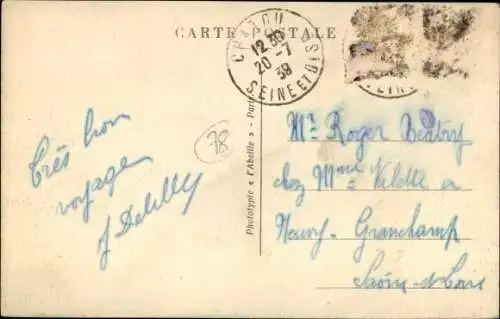 CARTE POSTALE
CHATOU
12 30
20 - 7
39
SEINE ET OISE
Très bon
voyage
78
Phototypie « l'Abeille » - Paris
Mr Roger
chez Mme
Neuvy - Grandchamp
Saône-et-Loire